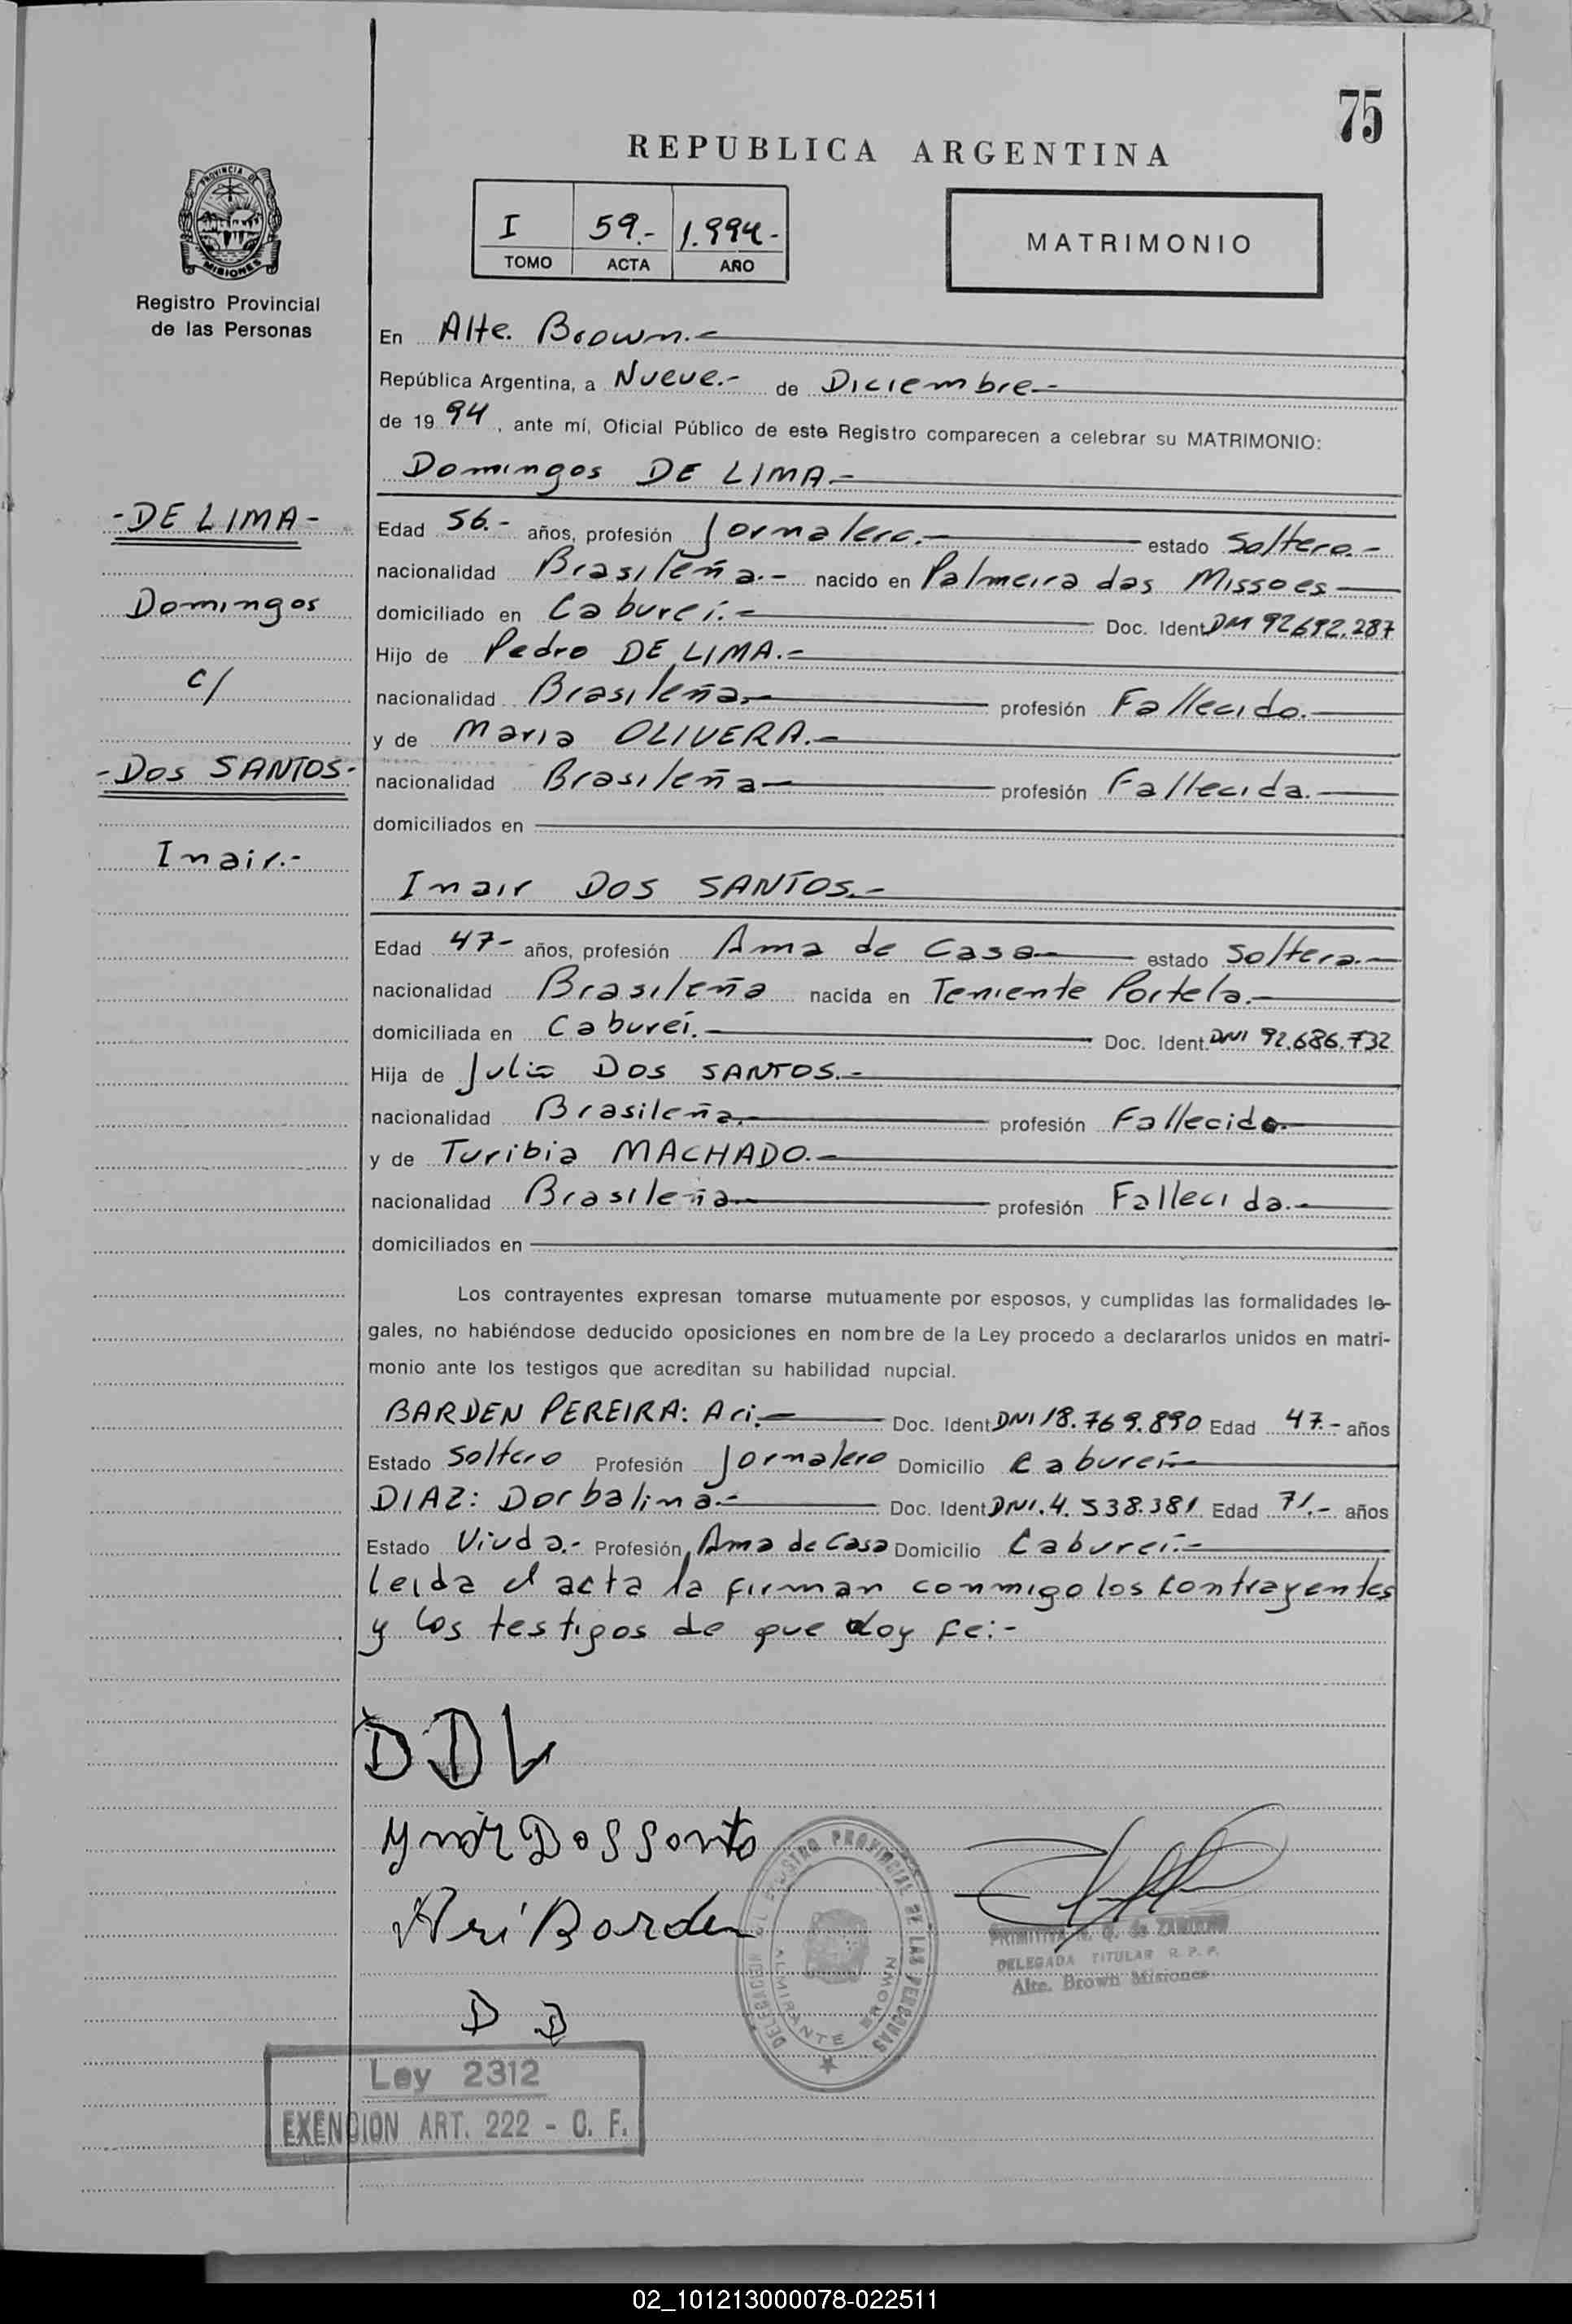 75
REPUBLICA ARGENTINA
PROVINCIA DE
MISIONES
Registro Provincial
de las Personas
I 59.- 1.994.-
TOMO ACTA AÑO
MATRIMONIO
En Alte. Brown.-
República Argentina, a Nueve.- de Diciembre.-
de 19 94, ante mí, Oficial Público de este Registro comparecen a celebrar su MATRIMONIO:
Domingos DE LIMA.-
-DE LIMA-
Edad 56.- años, profesión Jornalero.- estado Soltero.-
nacionalidad Brasileña.- nacido en Palmeira das Missoes
Domingos
domiciliado en Cabureí.- Doc. Ident. DNI 92.692.287
Hijo de Pedro DE LIMA.-
c/
nacionalidad Brasileña.- profesión Fallecido.-
y de Maria OLIVERA.-
-DOS SANTOS-
nacionalidad Brasileña profesión Fallecida.
domiciliados en
Inair.-
Inair DOS SANTOS.-
Edad 47- años, profesión Ama de Casa estado Soltera.-
nacionalidad Brasileña nacida en Teniente Portela.-
domiciliada en Cabureí.- Doc. Ident. DNI 92.686.732
Hija de Julio DOS SANTOS.-
nacionalidad Brasileña.- profesión Fallecido
y de Turibia MACHADO.-
nacionalidad Brasileña profesión Fallecida.-
domiciliados en
Los contrayentes expresan tomarse mutuamente por esposos, y cumplidas las formalidades le-
gales, no habiéndose deducido oposiciones en nombre de la Ley procedo a declararlos unidos en matri-
monio ante los testigos que acreditan su habilidad nupcial.
BARDEN PEREIRA: Ari.- Doc. Ident. DNI 18.769.890 Edad 47.- años
Estado Soltero Profesión Jornalero Domicilio Cabureí.-
DIAZ: Dorbalina.- Doc. Ident. DNI.4.538.381 Edad 71.- años
Estado Viuda.- Profesión Ama de Casa Domicilio Cabureí.-
leida el acta la firman conmigo los contrayentes
y los testigos de que doy fe:-
DDL
Ynair Dos Santo
Ari Barden
D D
DELEGACION REGISTRO PROVINCIAL DE LAS PERSONAS
ALMIRANTE BROWN
DELEGADA TITULAR R. P. P.
Alte. Brown Misiones
Ley 2312
EXENCION ART. 222 - C. F.
02_101213000078-022511